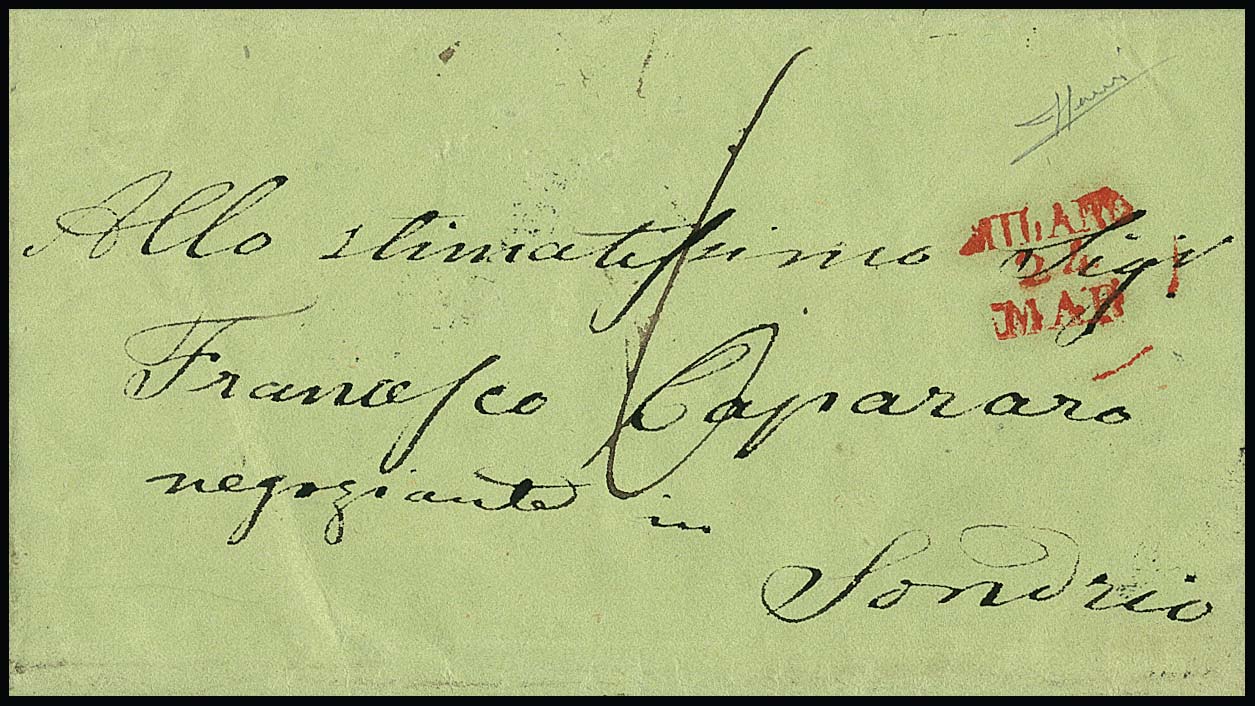 Allo stimatissimo Sigr
Francesco Capararo
negoziante in
Sondrio
6
MILANO
24
MAR